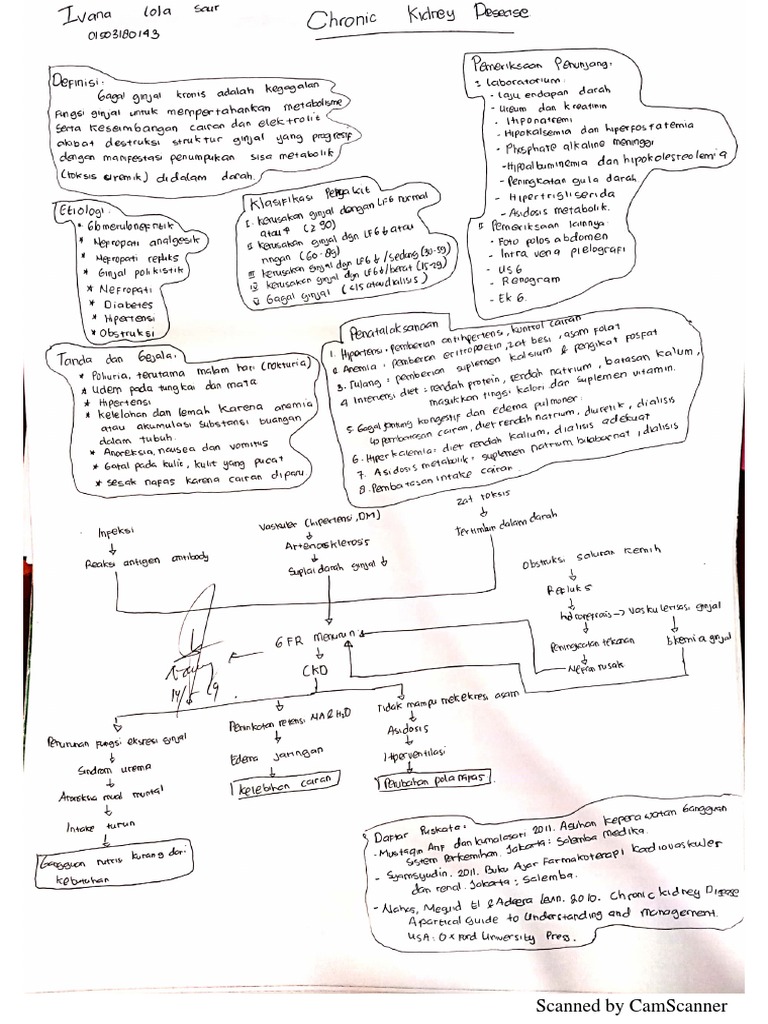 Ivana Lola Saur
01503180143
Chronic Kidney Desease
Definisi:
Gagal ginjal kronis adalah kegagalan
fungsi ginjal untuk mempertahankan metabolisme
serta keseimbangan cairan dan elektrolit
akibat destruksi struktur ginjal yang progresif
dengan manifestasi penumpukan sisa metabolik
(toksis uremik) didalam darah.
Pemeriksaan Penunjang:
I. Laboratorium:
- Laju endapan darah
- Ureum dan kreatinin
- Hiponatremi
- Hipokalsemia dan hiperfostatemia
- Phosphate alkaline meninggi
- Hipoalbuminemia dan hipokolesterolemia
- Peningkatan gula darah.
- Hipertrigliserida
- Asidosis metabolik.
II Pemeriksaan lainnya:
- Foto polos abdomen
- Intra vena pielografi
- USG
- Renogram
- EKG.
Etiologi
* Glomerulonefritik
* Nefropati analgesik
* Nefropati refluks
* Ginjal polikistik
* Nefropati
* Diabetes
* Hipertensi
* Obstruksi
Klasifikasi Penyakit
I. Kerusakan ginjal dengan LFG normal
atau ↑ (≥ 90)
II Kerusakan ginjal dgn LFG ↓ atau
ringan (60-89)
III Kerusakan ginjal dgn LFG ↓/sedang (30-59)
IV Kerusakan ginjal dgn LFG ↓/berat (15-29)
V Gagal ginjal (<15 atau dialisis)
Tanda dan Gejala:
* Poliuria, terutama malam hari (nokturia)
* Udem pada tungkai dan mata
* Hipertensi
* Kelelahan dan lemah karena anemia
atau akumulasi substansi buangan
dalam tubuh.
* Anoreksia, nausea dan vomitus
* Gatal pada kulit, kulit yang pucat
* Sesak napas karena cairan diparu.
Penatalaksanaan
1. Hipertensi: pemberian antihipertensi, kontrol cairan
2. Anemia: pemberian eritropoetin, zat besi, asam folat
3. Tulang: pemberian suplemen kalsium & pengikat fosfat
4 Intervensi diet: rendah protein, rendah natrium, batasan kalium,
masukkan tinggi kalori dan suplemen vitamin.
5. Gagal jantung kongestif dan edema pulmoner:
pembatasan cairan, diet rendah natrium, diuretik, dialisis
6. Hiperkalemia: diet rendah kalium, dialisis adekuat
7. Asidosis metabolik: suplemen natrium bikabornat, dialisis
8. Pembatasan intake cairan.
Infeksi
↓
Reaksi antigen antibody
Vaskuler (hipertensi, DM)
↓
Arteriosklerosis
↓
Suplai darah ginjal ↓
Zat toksis
↓
Tertimbun dalam darah
Obstruksi saluran kemih
↓
Refluks
↓
hidronefrosis → Vaskulerisasi ginjal
Peningkatan tekanan
Iskemia ginjal
Nefron rusak
GFR menurun
↓
CKD
Penurunan fungsi eksresi ginjal
↓
Sindrom uremia
↓
Anoreksia mual muntal
↓
Intake turun
↓
Gangguan nutrisi kurang dari
kebutuhan
Peninkatan retensi NA & H2O
↓
Edema jaringan
↓
Kelebihan cairan
Tidak mampu mekekresi asam
↓
Asidosis
↓
Hiperventilasi
↓
Perubahan pola napas
Daftar Pustaka:
- Mustaqin Arif dan Kumalasari 2011. Asuhan Keperawatan Gangguan
Sistem Perkemihan. Jakarta: Salemba Medika.
- Syamsyudin. 2011. Buku Ajar Farmakoterapi Kardiovaskuler
dan renal. Jakarta: Salemba.
- Nahas, Meguid El & Adeera Levin. 2010. Chronic Kidney Disease
A partical Guide to Understanding and Management.
USA: Oxford University Press.
Scanned by CamScanner